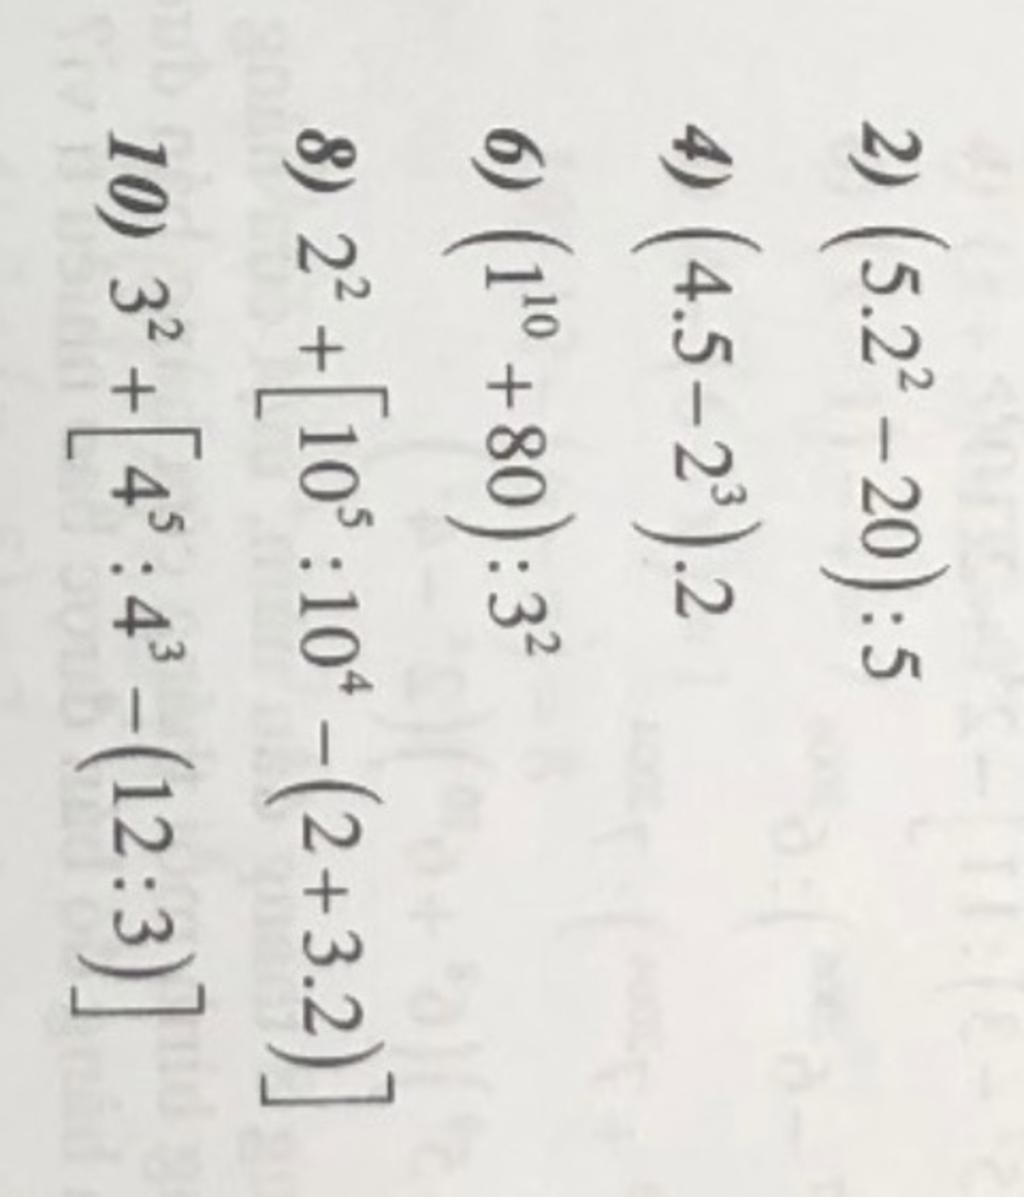 2) (5.2² − 20) : 5
4) (4.5 − 2³).2
6) (1¹⁰ + 80) : 3²
8) 2² + [10⁵ : 10⁴ − (2 + 3.2)]
10) 3² + [4⁵ : 4³ − (12 : 3)]